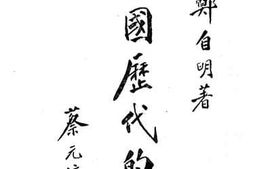 鄭自明著
國歷代的
蔡元